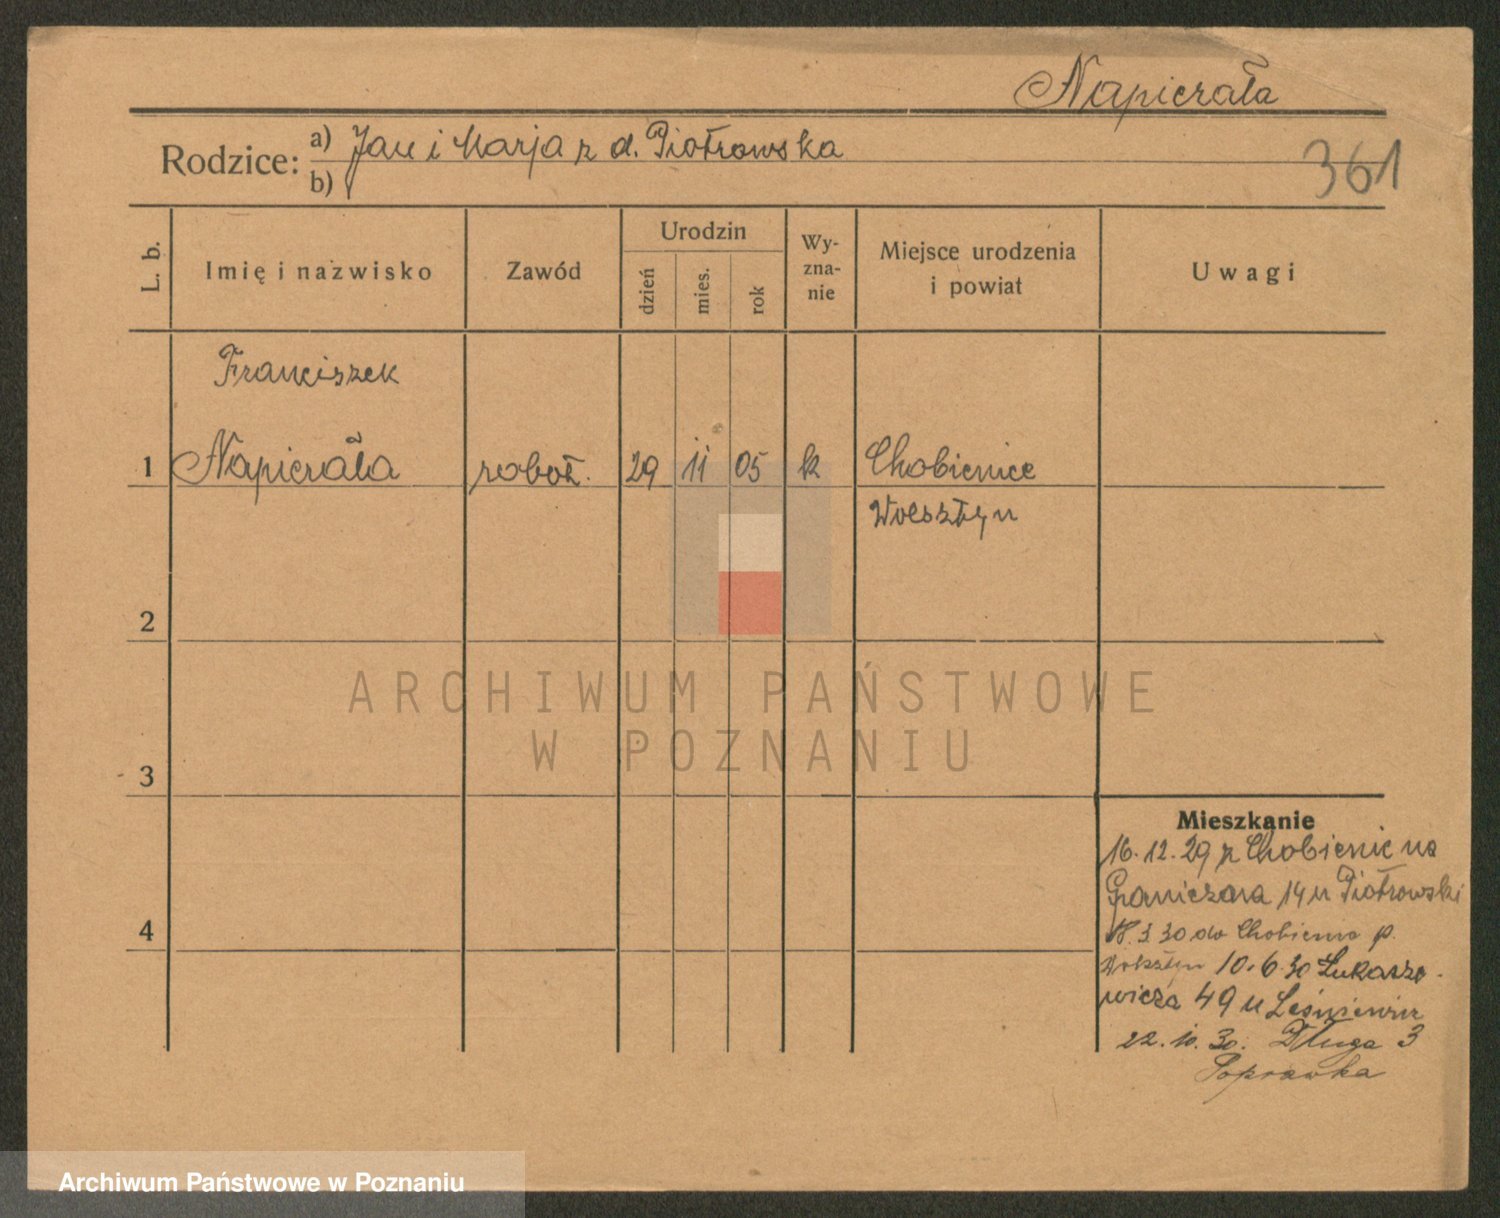 Napierała
Rodzice: a) Jan i Marja z d. Piotrowska
b)
361
L. b.
Imię i nazwisko
Zawód
Urodzin
dzień
mies.
rok
Wy-
zna-
nie
Miejsce urodzenia
i powiat
Uwagi
Franciszek
1 Napierała robot. 29 11 05 k Chobienice
Wolsztyn
2
3
4
Mieszkanie
16.12.29 z Chobienic na
Graniczna 14 u Piotrowski
3 30 do Chobienic p.
Wolsztyn 10.6.30 Łukasze-
wicza 49 u Leśniewicz
22.10.30. Długa 3
Poprawka
ARCHIWUM PAŃSTWOWE
W POZNANIU
Archiwum Państwowe w Poznaniu